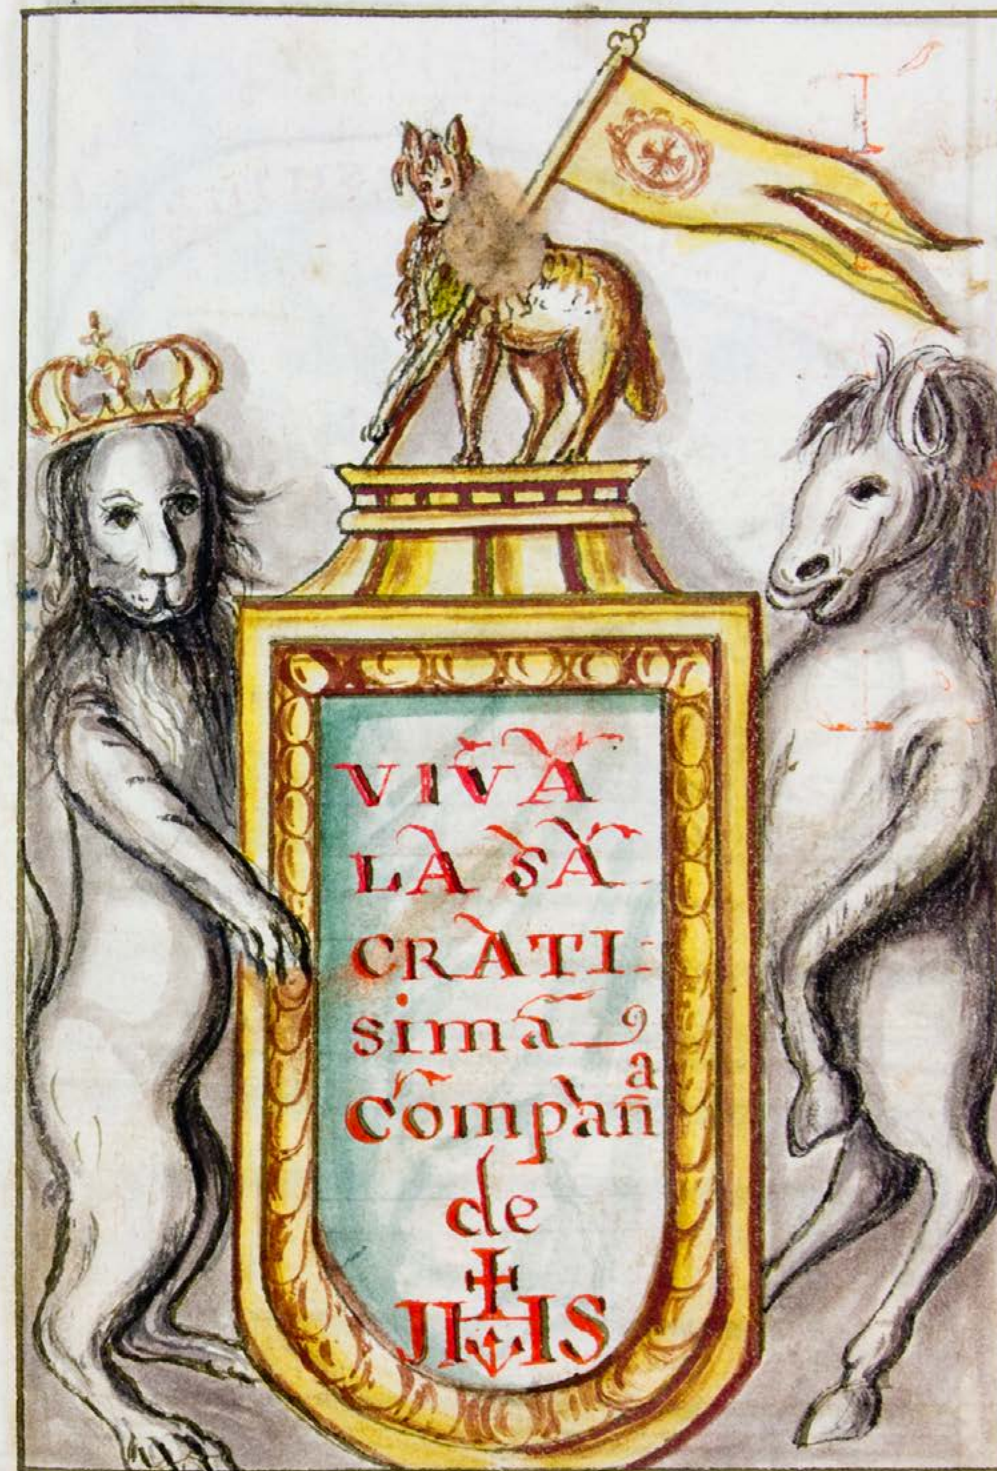 VIVA
LA SA
CRATI
sima
Compañª
de
JHS